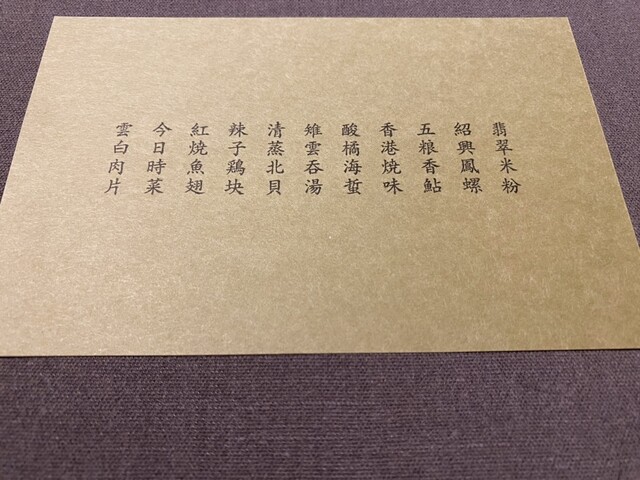 翡翠米粉
紹興鳳螺
五粮香鮎
香港焼味
酸橘海蜇
雉雲吞湯
清蒸北貝
辣子鶏块
紅焼魚翅
今日時菜
雲白肉片